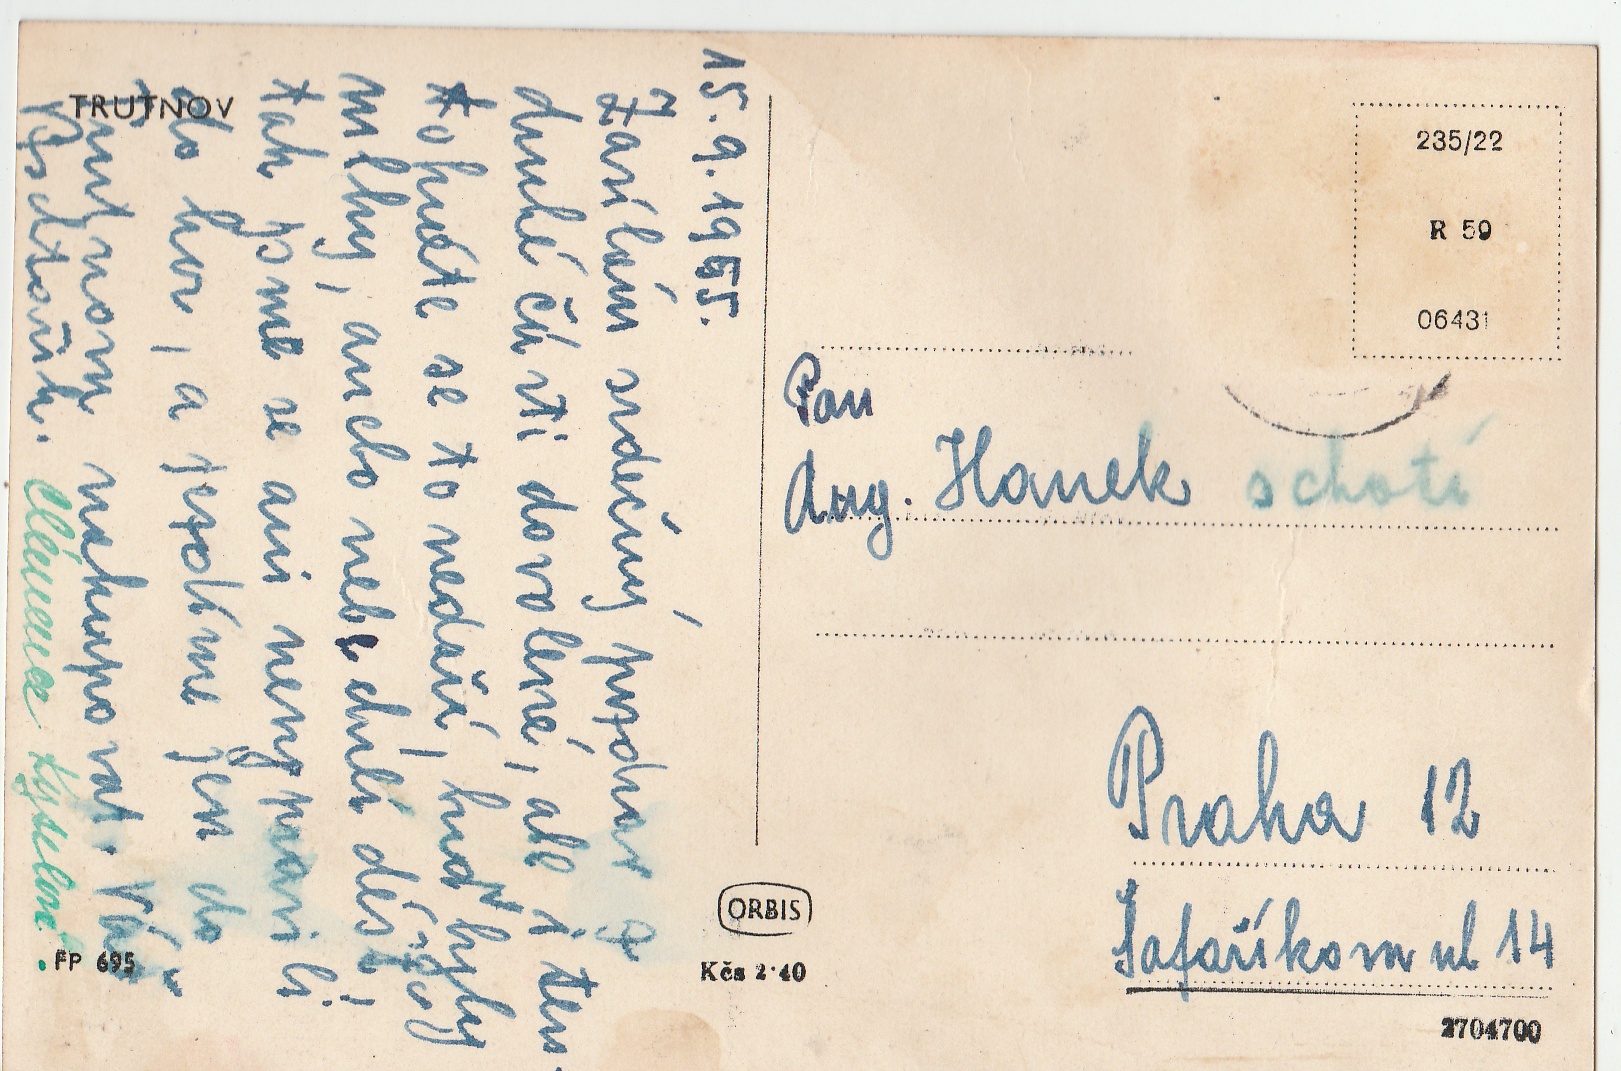 TRUTNOV
15.9.1955.
Zasílám srdečný pozdrav z
druhé části dovolené, ale i ten-
tokráte se to nedaří, buď byly
mlhy, anebo nebe chrlí déšť,
tak jsme se ani nevypravili
do hor, a jezdíme jen do
Trutnova nakupovat. Váš
Bedřich.
FP 695
ORBIS
Kčs 2·40
235/22
R 59
06431
Pan
Aug. Hanek s chotí
Praha 12
Šafaříkova ul 14
2704700